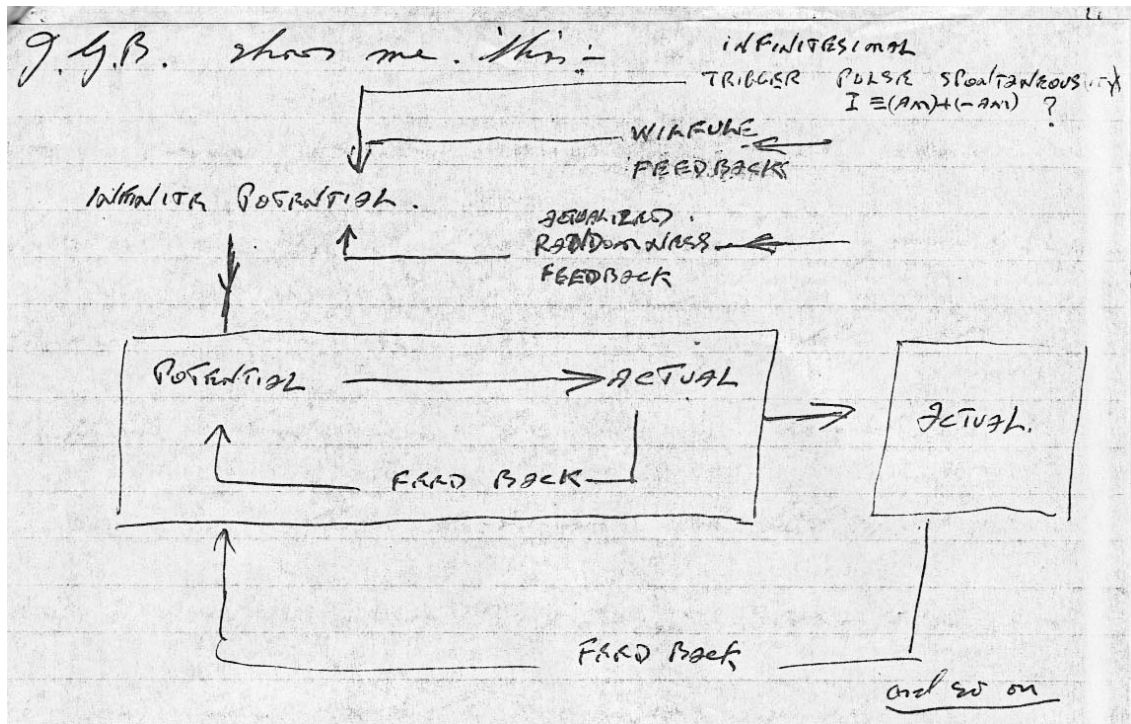 J.G.B. shows me this:-
INFINITESIMAL
TRIGGER PULSE SPONTANEOUSITY
I ≡(AM)+(-AM) ?
FEEDBACK
INFINITE POTENTIAL.
ACTUALIZED
RANDOMNESS
FEEDBACK
POTENTIAL
ACTUAL
ACTUAL.
FEED BACK
FEED BACK
and so on